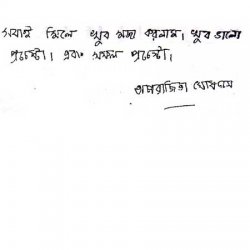 সবাই মিলে খুব মজা করলাম। খুব ভালো
প্রচেষ্টা। এবং সফল প্রচেষ্টা।
অপরাজিতা ঘোষদাস